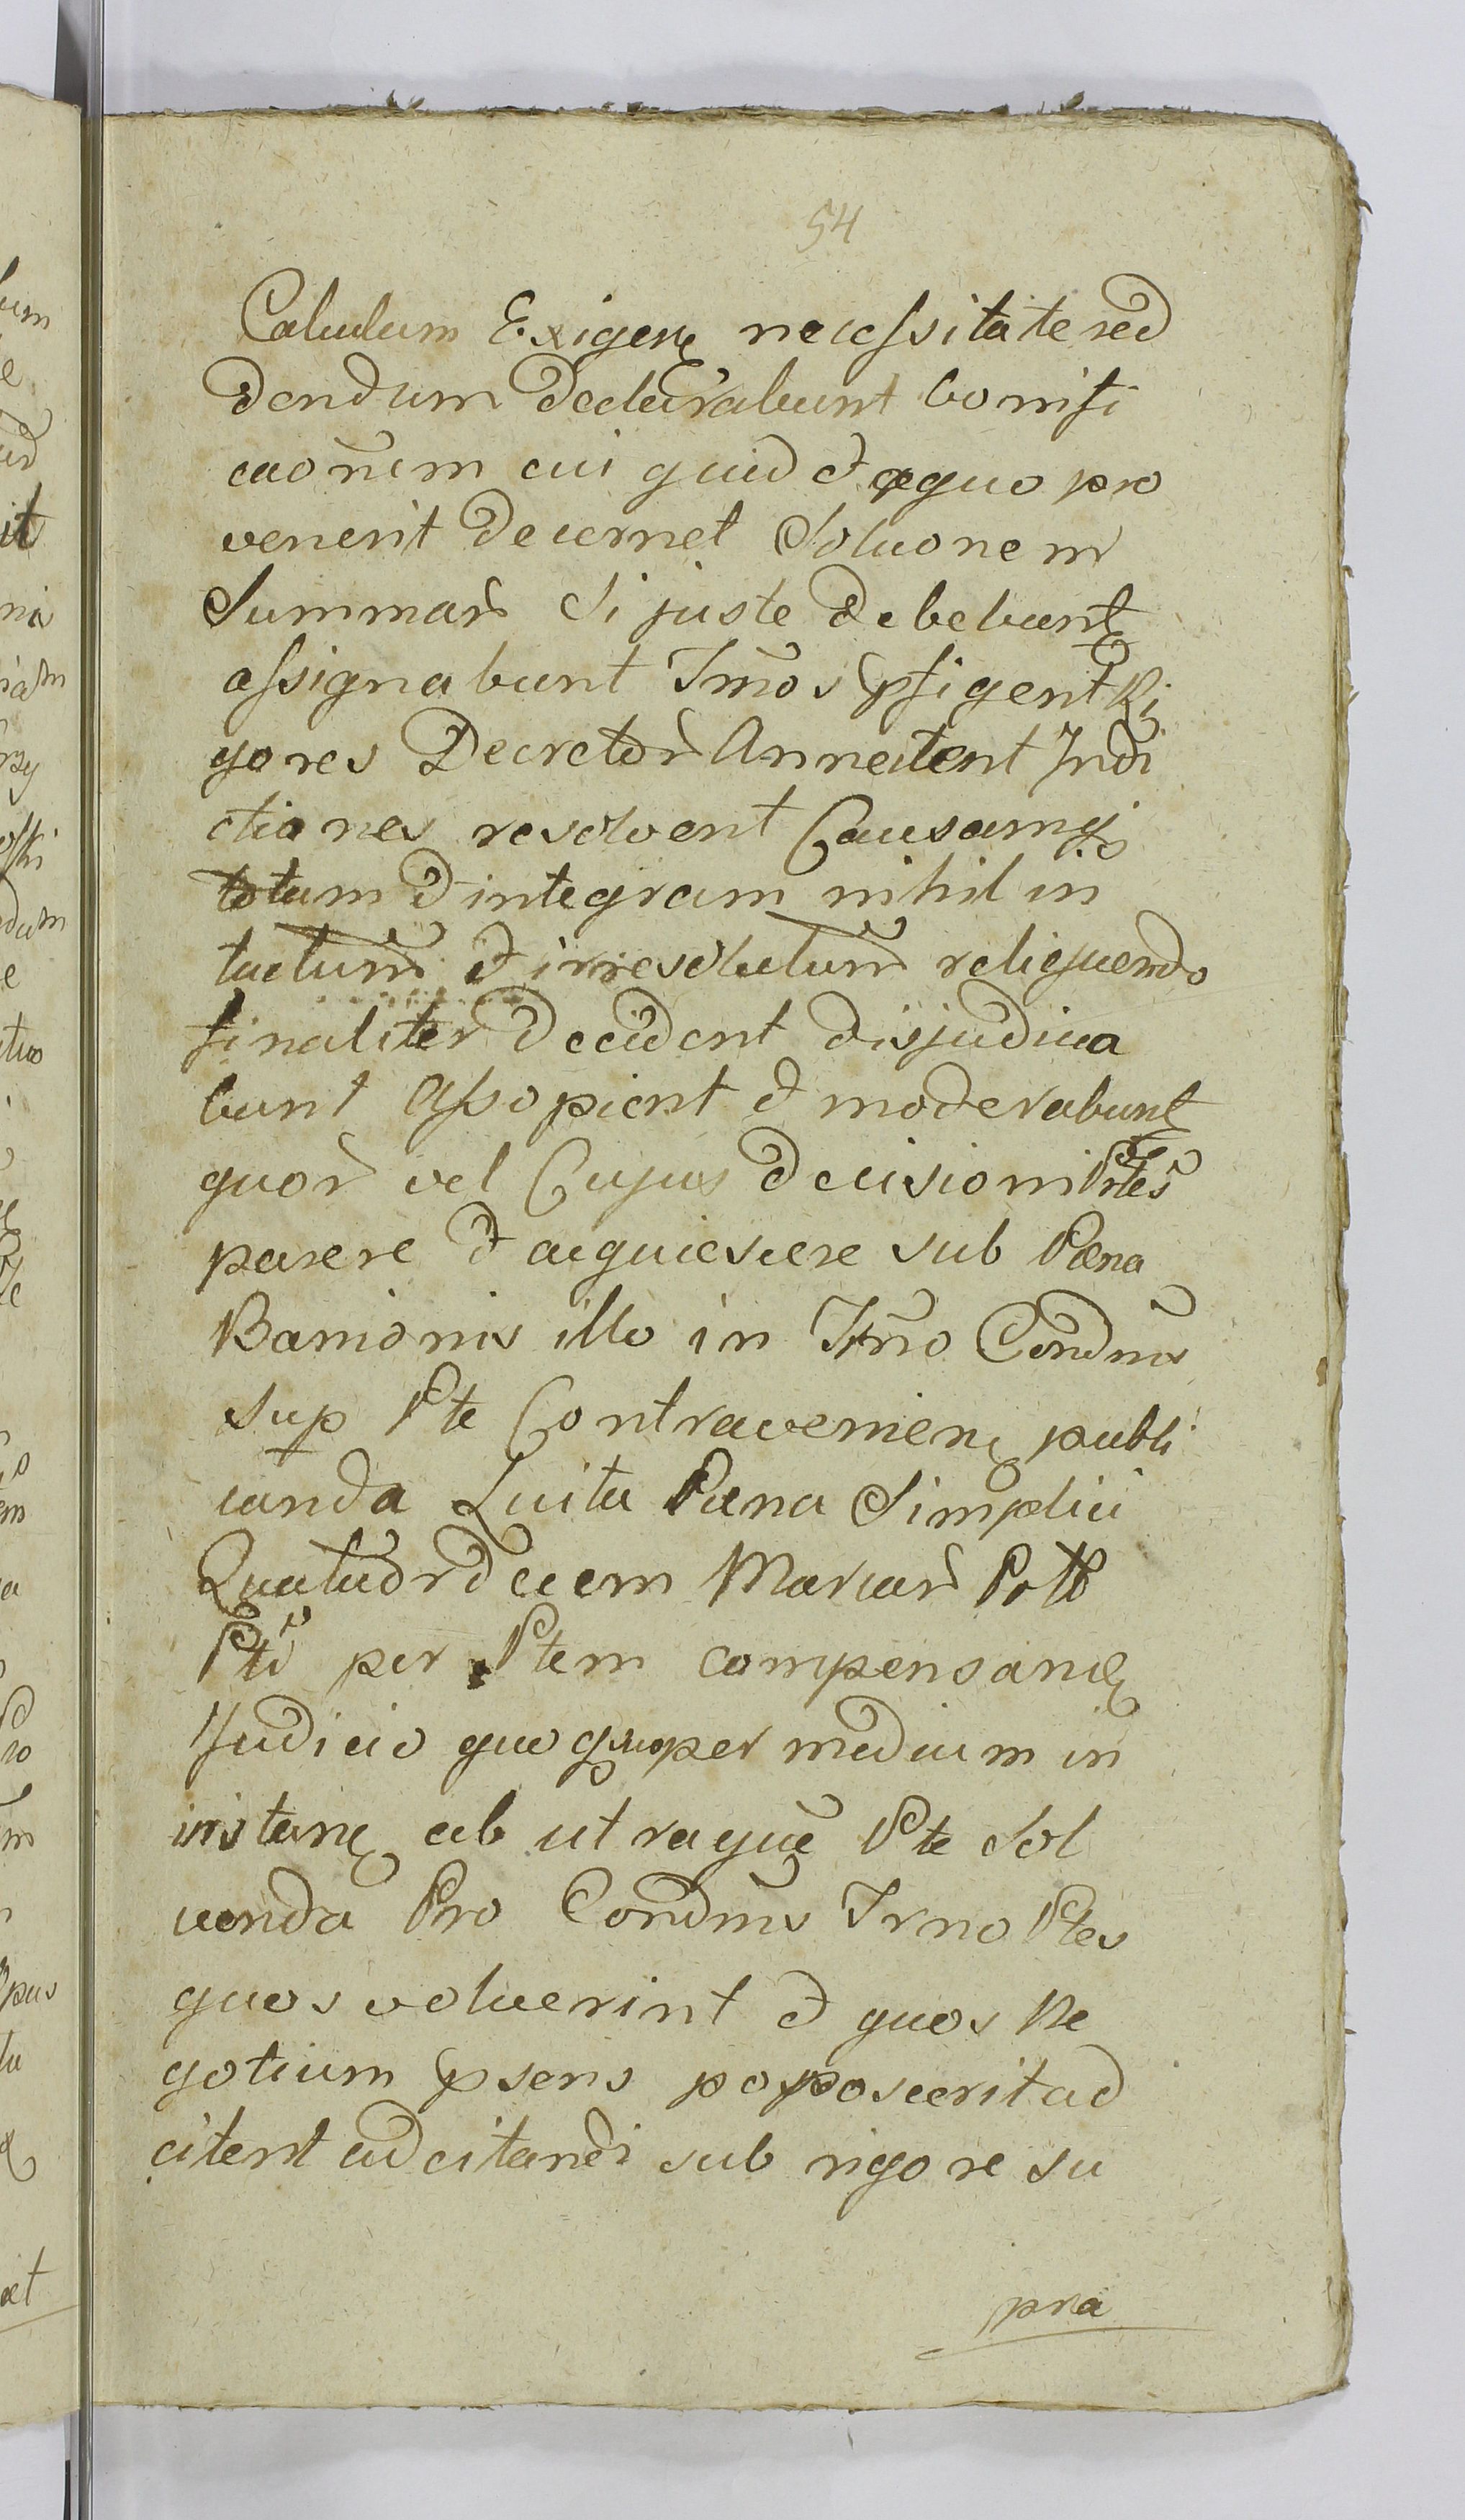 54
Calculum Exigen̄ necessitate red
dendum declarabunt bonifi
caōnem cui quid et ex quo pro
venerit decernet Soluonem
Summar̄ Si juste debebunt̄
assignabunt Tmōs pfigent Ri
gores Decretor̄ Annectent Indi
ctiones resolvent Causamq̄
totam et integram nihil in
tactum̄ et irresolutum̄ reliquendo
finaliter decident dijudica
bunt Assopient et moderabunt̄
quor̄ vel Cujus decisioni Ptes̄
parere et acquiescere sub Pœna
Banionis illo in Tmn̄o Condnī
sup Pte Contravenien̄ publi
canda Luita Pœna Simplici
Quatuordecem Marcar̄ Pottͤ
Pti per Ptem compensan̄
Judicio quoq̄ semper medium in
instan̄ ab utraquē Pte Sol
venda Pro Condnī Trno Ptes
quos voluerint et quos Ne
gotium psens poposcerit ad
citent adcitandi sub rigore su
pra